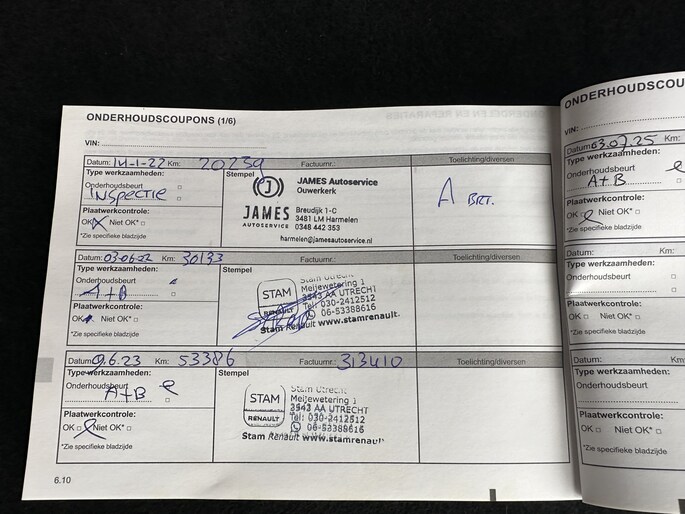 ONDERHOUDSCOUPONS (1/6)
VIN:
Datum: 14-1-22 Km: 20239 Factuurnr.: Toelichting/diversen
Type werkzaamheden: Stempel
Onderhoudsbeurt
INSPECTIE
Plaatwerkcontrole:
OK Niet OK*
*Zie specifieke bladzijde
JAMES Autoservice
Ouwerkerk
JAMES
AUTOSERVICE
Breudijk 1-C
3481 LM Harmelen
0348 442 353
harmelen@jamesautoservice.nl
A BRT.
Datum: 03-06-22 Km: 30133 Factuurnr.: Toelichting/diversen
Type werkzaamheden: Stempel
Onderhoudsbeurt
A+B
Plaatwerkcontrole:
OK Niet OK*
*Zie specifieke bladzijde
STAM
RENAULT
Stam Utrecht
Meijewetering 1
3543 AA UTRECHT
Tel: 030-2412512
06-53388616
Stam Renault www.stamrenault.
Datum: 9.6.23 Km: 53386 Factuurnr.: 313410 Toelichting/diversen
Type werkzaamheden: Stempel
Onderhoudsbeurt
A+B
Plaatwerkcontrole:
OK Niet OK*
*Zie specifieke bladzijde
STAM
RENAULT
Stam Utrecht
Meijewetering 1
3543 AA UTRECHT
Tel: 030-2412512
06-53388616
Stam Renault www.stamrenault
6.10
ONDERHOUDSCOU
VIN:
Datum: 03.07.25 Km:
Type werkzaamheden:
Onderhoudsbeurt
A+B
Plaatwerkcontrole:
OK Niet OK*
*Zie specifieke bladzijde
Datum: Km:
Type werkzaamheden:
Onderhoudsbeurt
Plaatwerkcontrole:
OK Niet OK*
*Zie specifieke bladzijde
Datum: Km:
Type werkzaamheden:
Onderhoudsbeurt
Plaatwerkcontrole:
OK Niet OK*
*Zie specifieke bladzijde